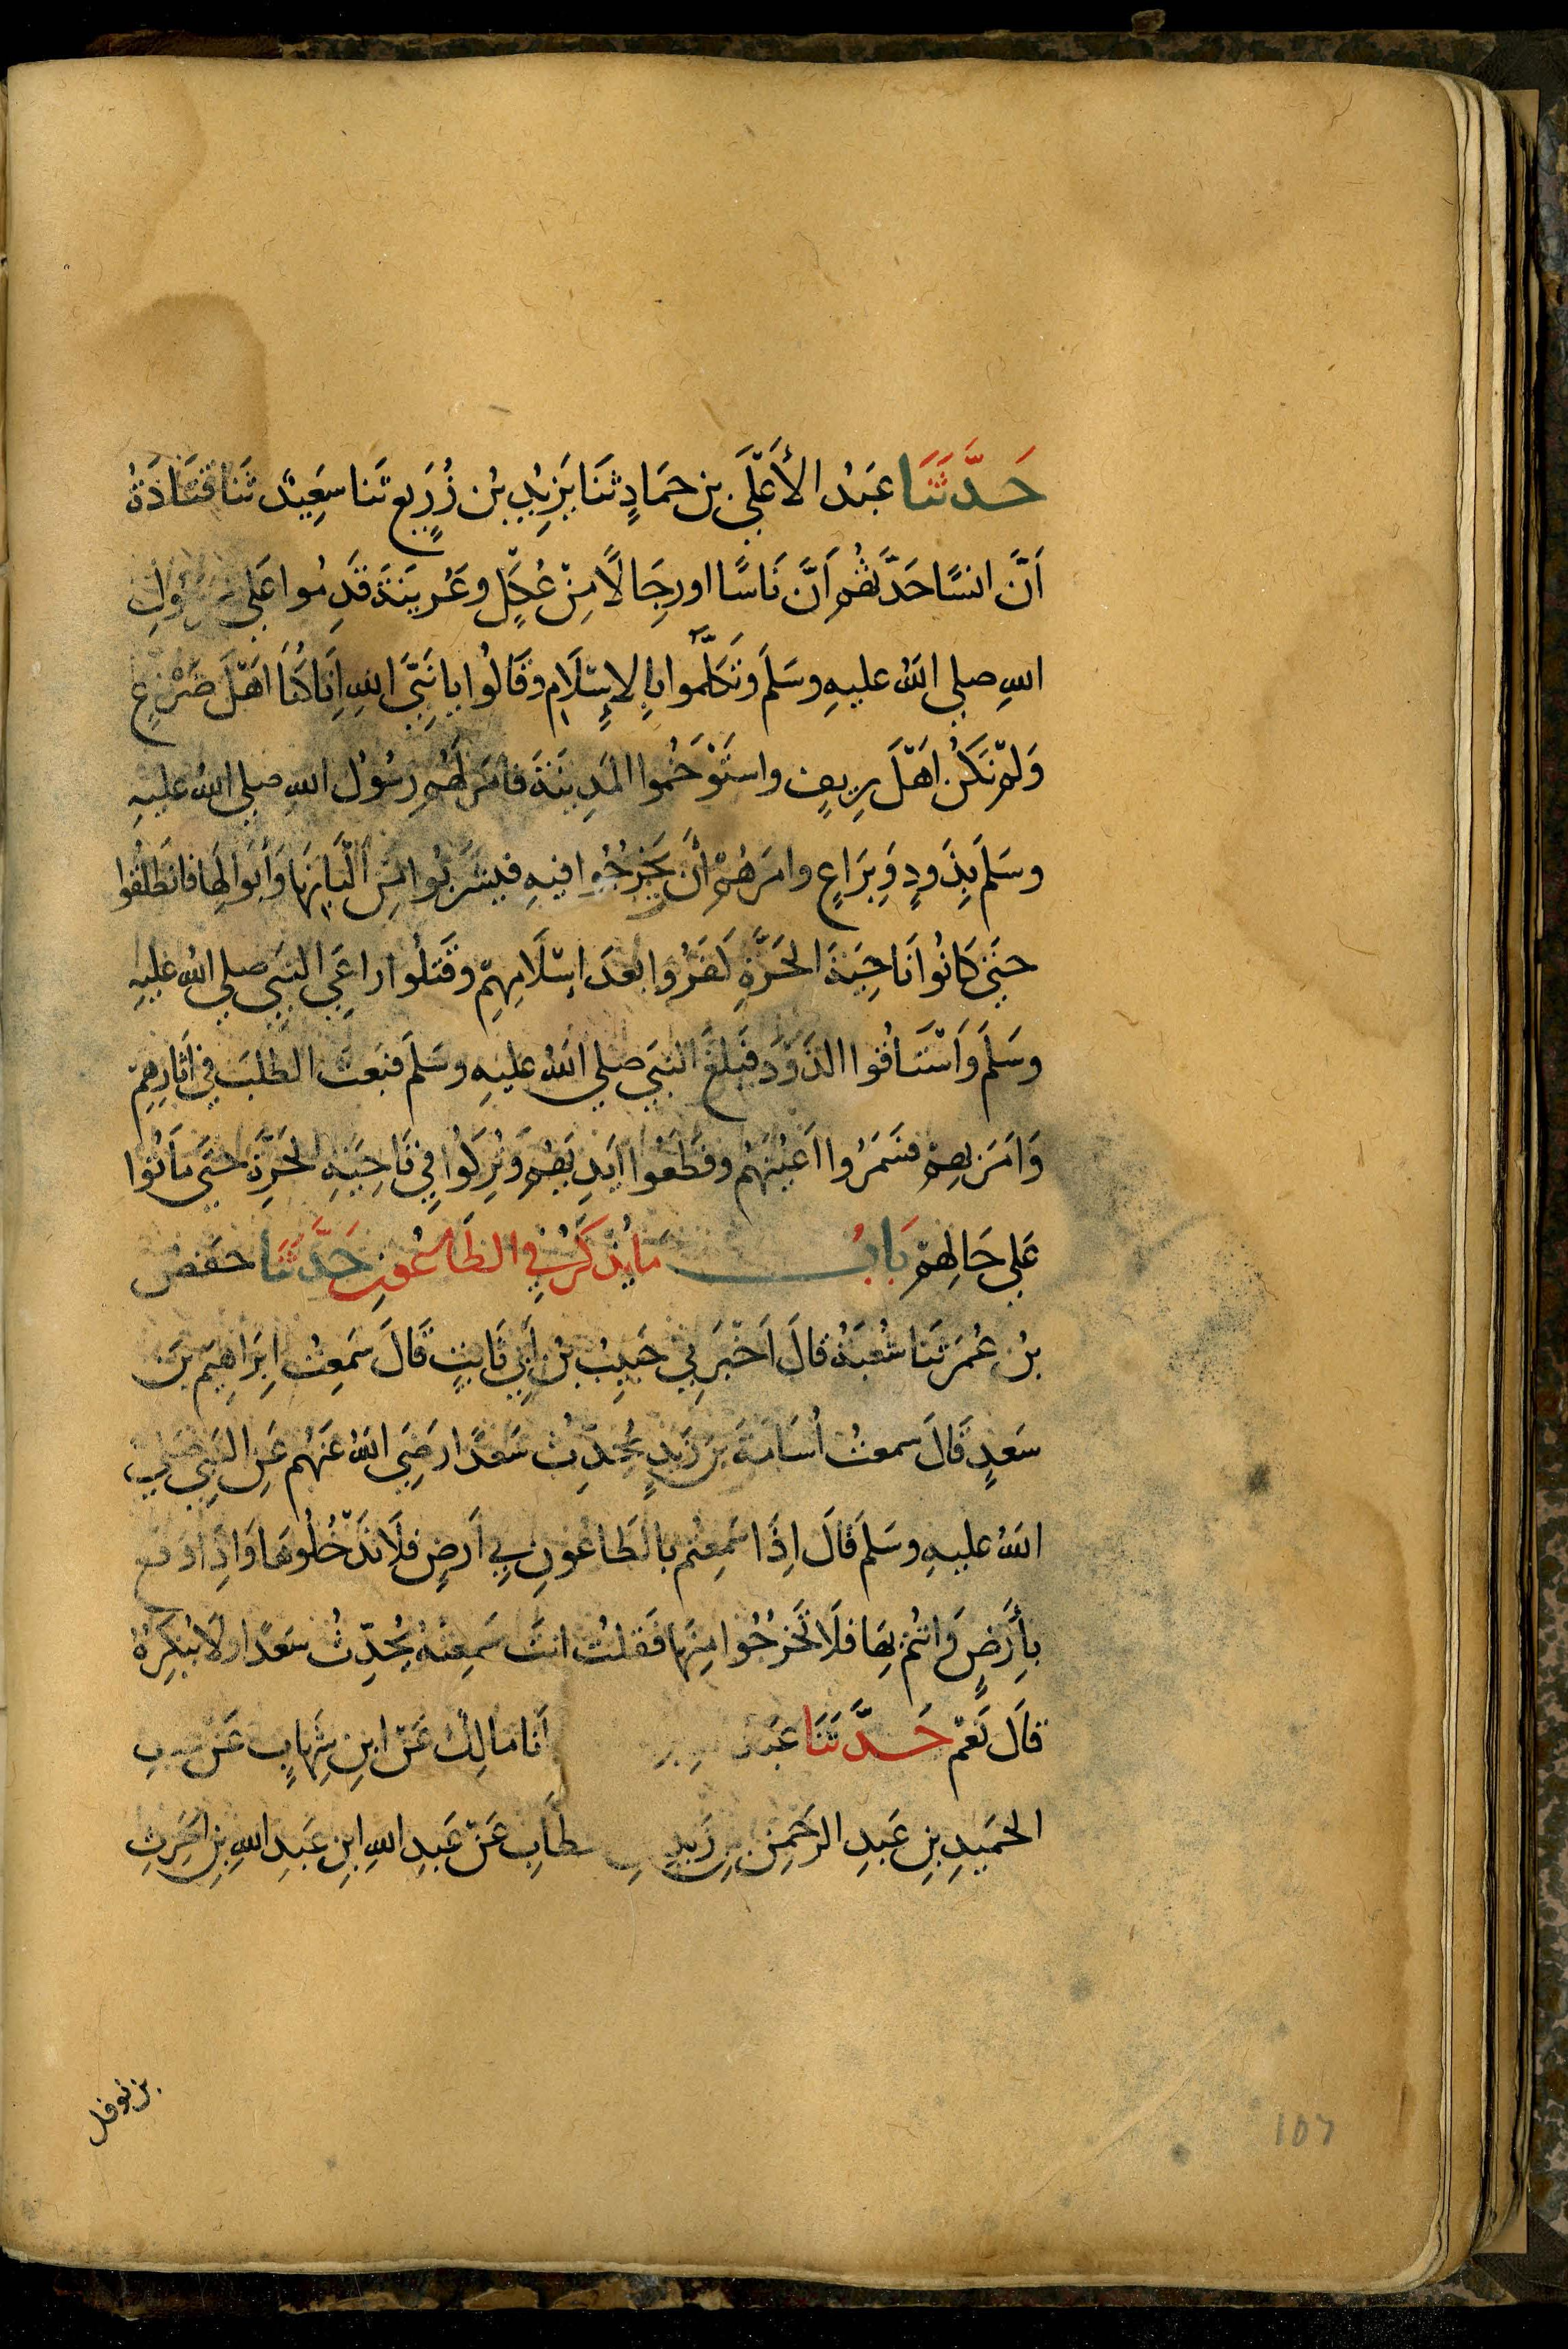 حَدَّثَنَا عَبْدُ الأَعْلَى بن حَمَادٍ ثَنَا يَزِيْدِ بْن زُرَيعٍ ثَنا سَعِيْدٌ ثَنا قَتَادَةُ
اَنَّ انسًا حَدَّثَهُم اَنَّ نَاسًا اورجَالًا مِنْ عُكْلٍ وعُرَيْنَةَ قَدِمُوا عَلى رسُولِ
اللهِ صلى اللهُ عليهِ وسَلَم وَتَكَلَّمُوا بِالاِسْلَامِ وَقَالُوا يانَبِيَّ اللهِ اِنَا كُنَا اَهْلَ ضَرْعٍ
وَلَمْ نَكُنْ اَهْلَ رِيفٍ واستَوْخَمُوا المَدِينَةَ فامَر لَهُم رسُولُ اللهِ صلى اللهُ عليهِ
وسَلَم بِذَودٍ وَبِرَاعٍ وامَرَهُمْ أن يَخْرُجُوا فيهِ فيشْرَبُوا مِن الْبَانِهَا وَأبْوالِهَا فانطَلَقُوا
حتىَ كَانُوا نَاحِيَةَ الحَرَّةِ كَفَرُوا بعدَ اِسْلَامِهِمْ وقَتَلُوا راعِيَ النبَي صلى اللهُ عليهِ
وسَلَم وَاسْتَاقُوا الذَوْدَ فَبَلغَ النبَي صلى اللهُ عليهِ وسَلَم فبَعثَ الطلبَ في اَثارِهِمْ
وَاَمَرَ بهِم فَسَمَرُوا اَعْيُنَهُم وقَطَعُوا اَيدِيَهُم وَتُرِكُوا فِي نَاحِيَةِ الحَرَّةِ حتىَ مَاتُوا
عَلى حَالِهِمْ بَابُ مَا يُذكَرُ فِي الطَاعُونِ حَدَّثَنَا حفصُ
بْن عُمَر ثَنا شُعبَةُ قالَ اَخْبَرَنِي حَبِيبُ بْن أَبِي ثَابِتٍ قَالَ سَمِعتُ اِبرَاهِيمَ بنَ
سَعدٍ قَالَ سمعتُ اُسَامَةَ بنَ زَيدٍ يُحدِثُ سَعدًا رضِيَ اللهُ عَنهُم عَنِ النبِيِ صَلى
اللهُ عليهِ وسَلَم قالَ اِذَا سَمِعتُم بالطَاعُونِ فِي اَرضٍ فلَا تَدْخُلُوهَا وَاِذا وقع
بأَرَضٍ وَانتُم بِهَا فلَا تَخْرُجُوا مِنهَا فَقلتُ انتَ سَمِعتهُ يُحدِثُ سَعدًا ولَا يُنكِرُهُ
قالَ نَعَم حَدَّثَنَا عَبدُ اَنَا مَالِكٌ عَنْ ابنِ شِهَابٍ عَنْ عبدِ
الحمَيدِ بنِ عَبدِ الرَحمنِ بنِ زَيدِ طَابِ عَنْ عَبدِ اللهِ ابنِ عَبدِ اللهِ بنِ الحَرِثِ
بن نوفل